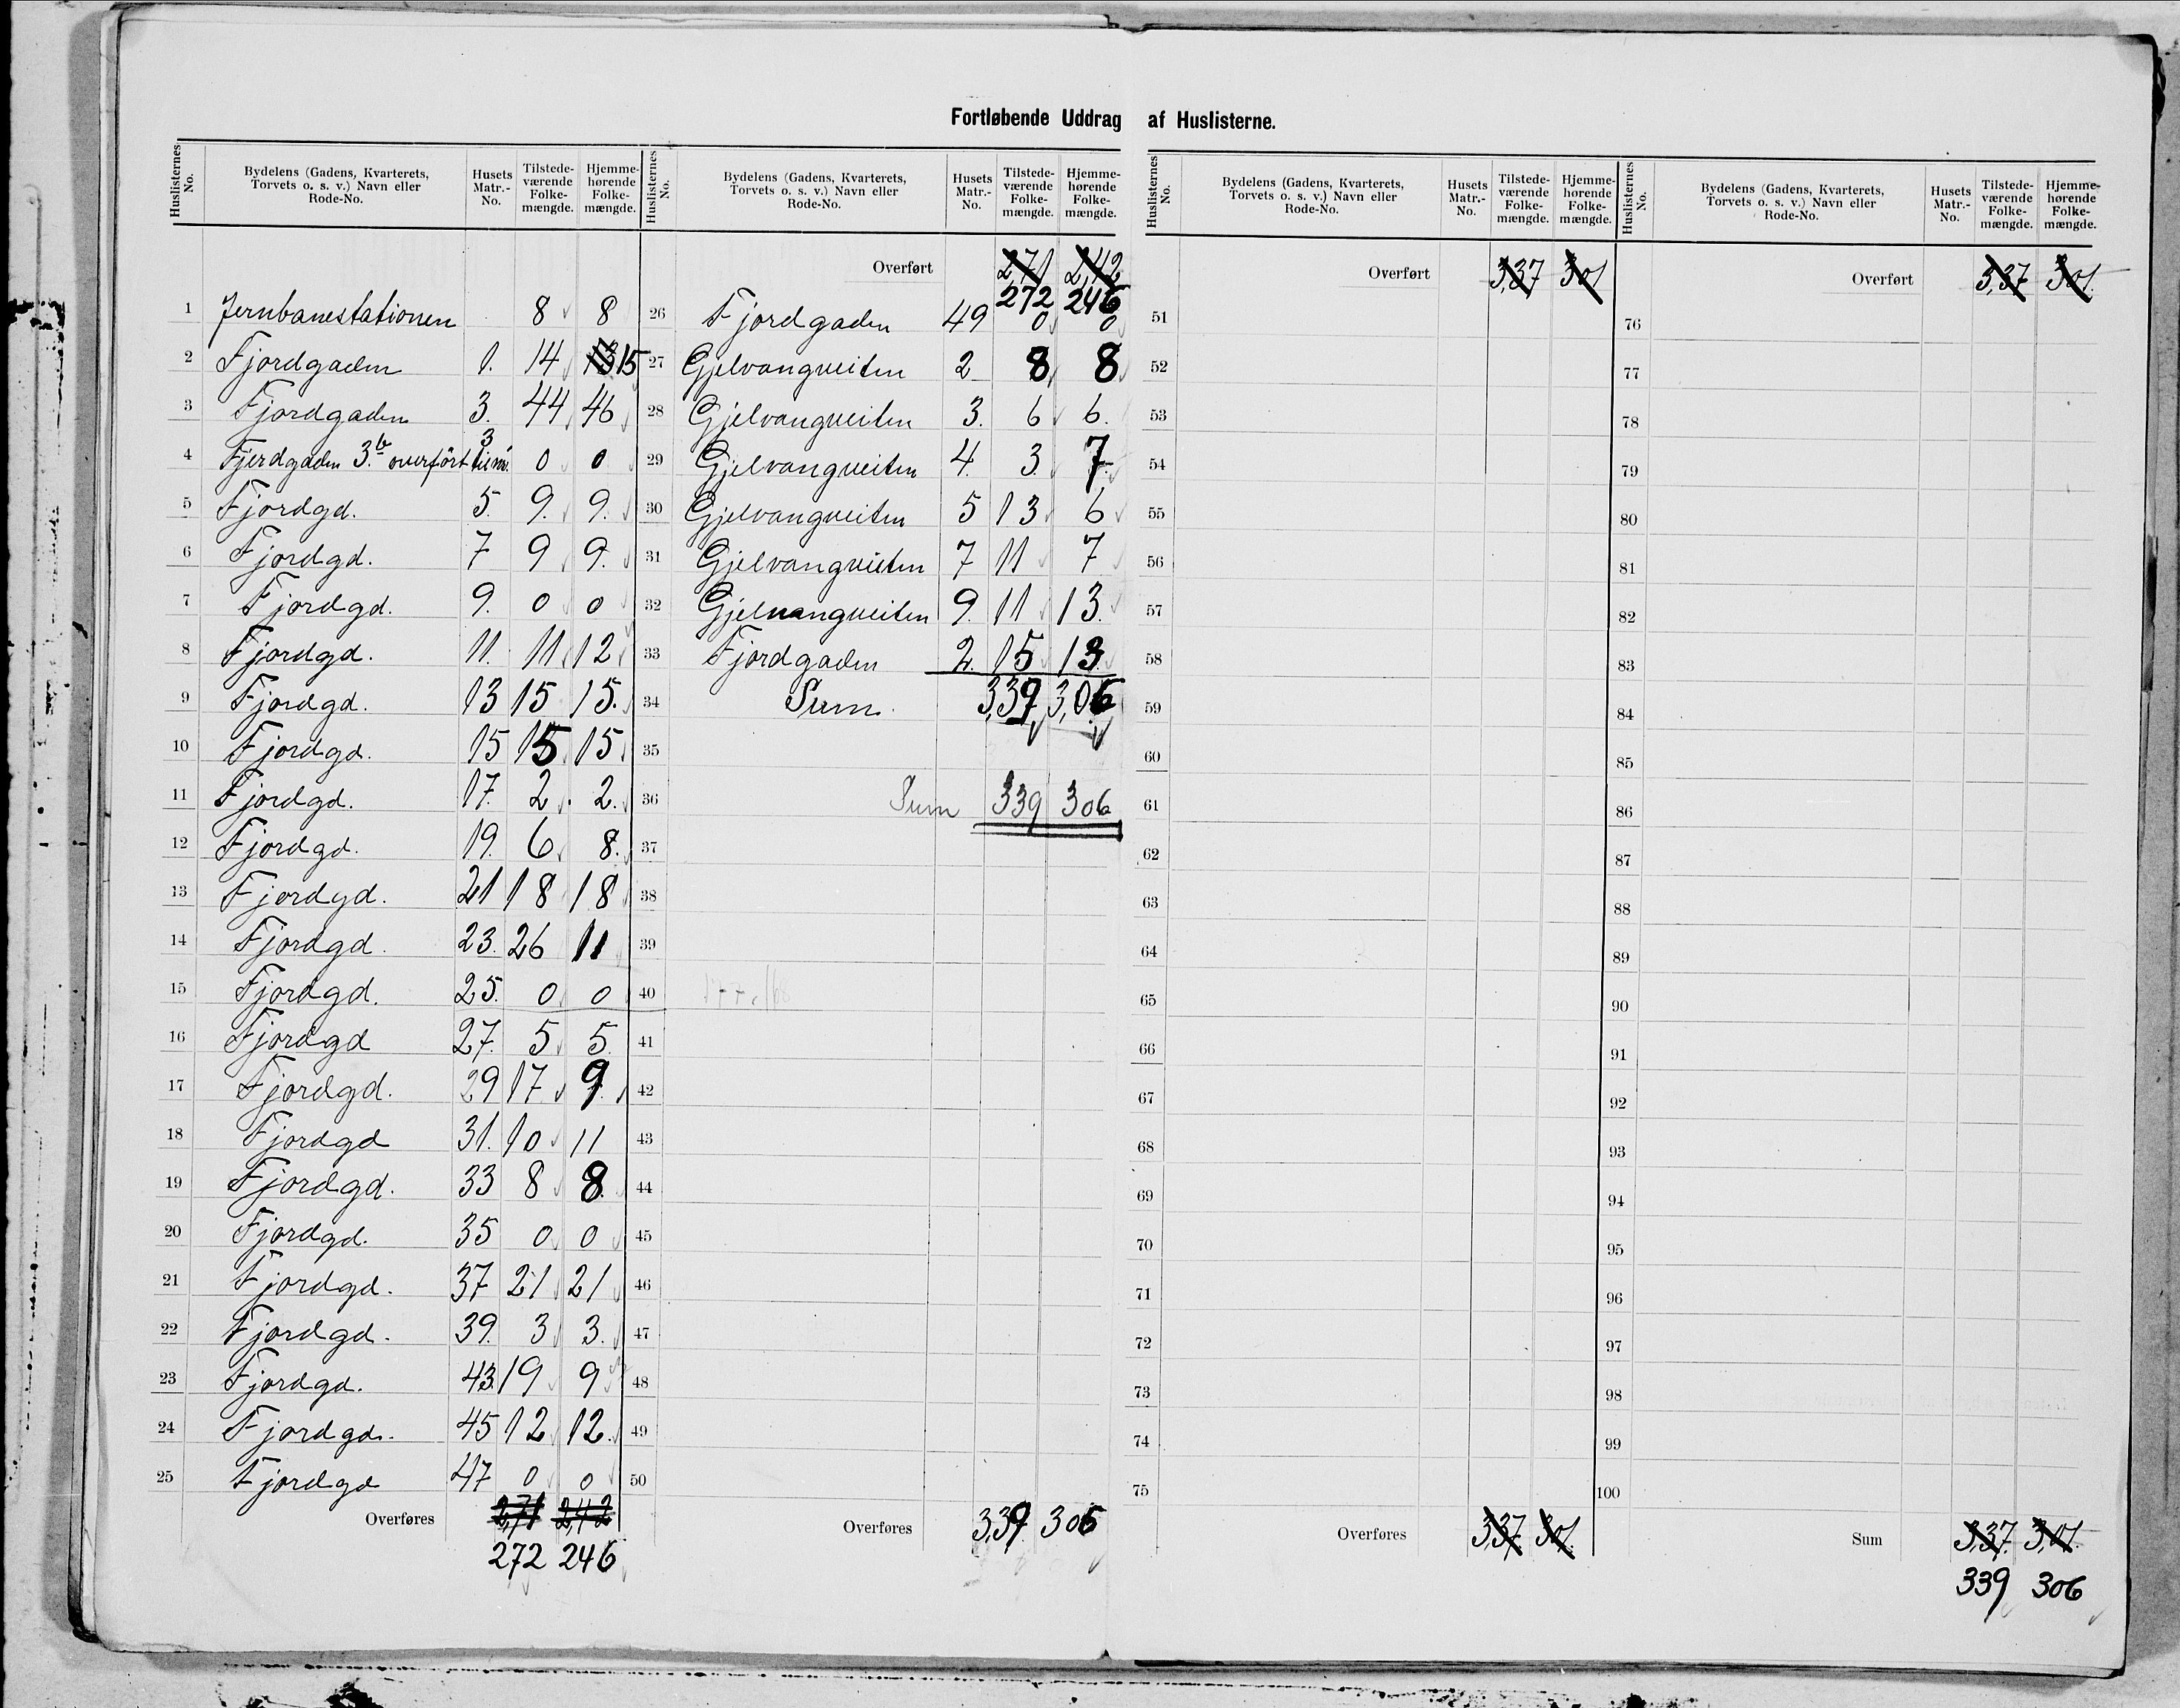 Fortløbende Uddrag af Huslisterne.
Huslisternes No. Bydelens (Gadens, Kvarterets, Torvets o. s. v.) Navn eller Rode-No. Husets Matr.-No. Tilstedeværende Folkemængde. Hjemmehørende Folkemængde.
1 Jernbanestationen 8 8
2 Fjordgaden 1. 14 13 15
3 Fjordgaden 3. 44 46
4 Fjordgaden 3.b overført til nr. 3 0 0
5 Fjordgd. 5. 9. 9.
6 Fjordgd. 7 9 9.
7 Fjordgd. 9. 0 0
8 Fjordgd. 11. 11 12
9 Fjordgd. 13 15 15.
10 Fjordgd. 15 15 15.
11 Fjordgd. 17. 2 2.
12 Fjordgd. 19. 6 8.
13 Fjordgd. 21 18 18
14 Fjordgd. 23. 26 11
15 Fjordgd. 25. 0 0
16 Fjordgd 27. 5 5
17 Fjordgd. 29 17 9.
18 Fjordgd 31. 10 11
19 Fjordgd. 33 8 8.
20 Fjordgd. 35 0 0
21 Fjordgd. 37 21 21
22 Fjordgd. 39. 3 3.
23 Fjordgd. 43 19 9
24 Fjordgd. 45 12 12.
25 Fjordgd 47 0 0
Overføres 2,71 2,42
272 246
Huslisternes No. Bydelens (Gadens, Kvarterets, Torvets o. s. v.) Navn eller Rode-No. Husets Matr.-No. Tilstedeværende Folkemængde. Hjemmehørende Folkemængde.
Overført 2,71 2,42
272 246
26 Fjordgaden 49 0 0
27 Gjelvangveiten 2 8 8
28 Gjelvangveiten 3. 6 6.
29 Gjelvangveiten 4. 3 7
30 Gjelvangveiten 5 13 6
31 Gjelvangveiten 7 11 7
32 Gjelvangveiten 9. 11 13.
33 Fjordgaden 2. 15 13
34 Sum 3,39 3,06
35
36 Sum 339 306
37
38
39
40
41
42
43
44
45
46
47
48
49
50
Overføres 3,39 306
Huslisternes No. Bydelens (Gadens, Kvarterets, Torvets o. s. v.) Navn eller Rode-No. Husets Matr.-No. Tilstedeværende Folkemængde. Hjemmehørende Folkemængde.
Overført 3,37 301
51
52
53
54
55
56
57
58
59
60
61
62
63
64
65
66
67
68
69
70
71
72
73
74
75
Overføres 3,37 301.
Huslisternes No. Bydelens (Gadens, Kvarterets, Torvets o. s. v.) Navn eller Rode-No. Husets Matr.-No. Tilstedeværende Folkemængde. Hjemmehørende Folkemængde.
Overført 3,37 301.
76
77
78
79
80
81
82
83
84
85
86
87
88
89
90
91
92
93
94
95
96
97
98
99
100
Sum 3,37. 3,01.
339 306